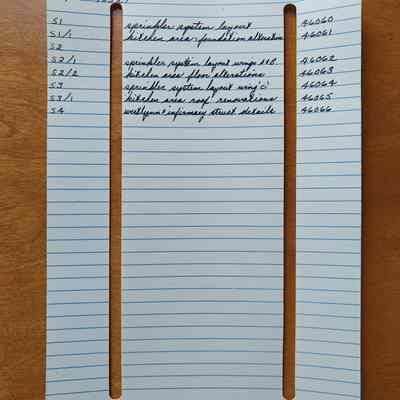 S1 sprinkler system layout 46060
S1/1 kitchen area; foundation alteration 46061
S2
S2/1 sprinkler system layout wings A&B. 46062
S2/2 kitchen area floor alterations 46063
S3 sprinkler system layout wing 'c' 46064
S3/1 kitchen area roof renovations 46065
S4 infirmary struct details 46066